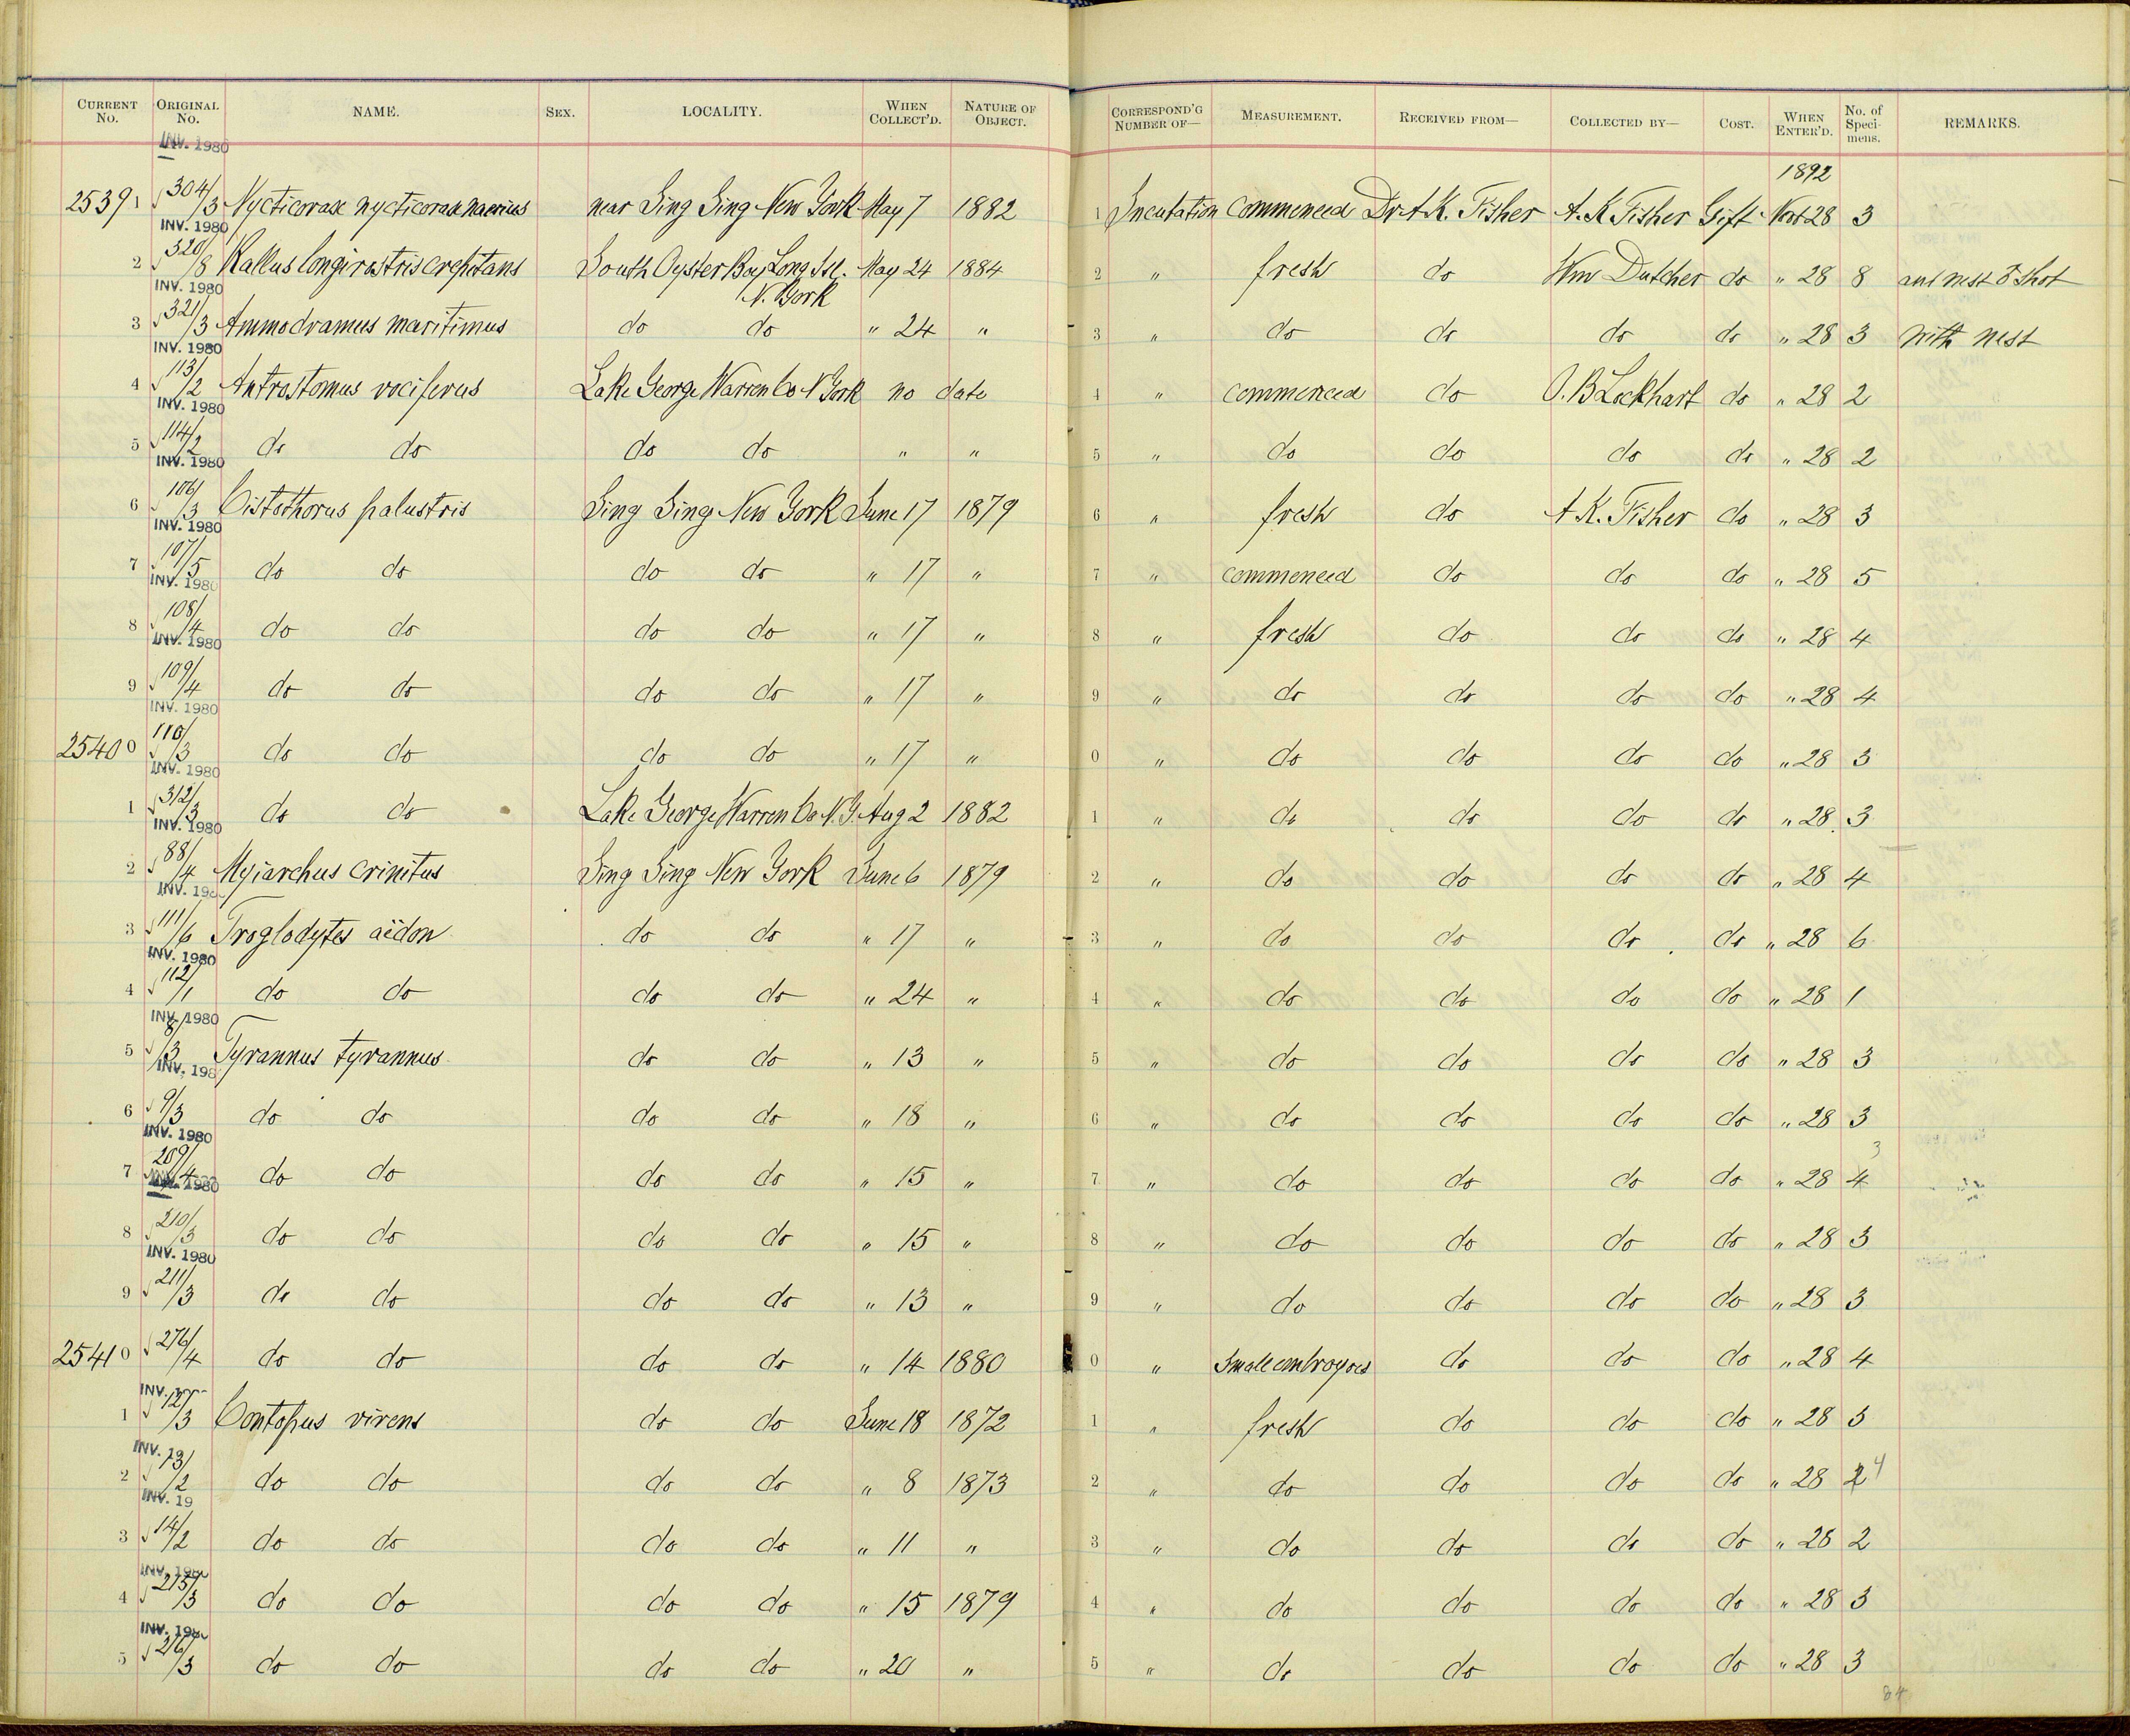 CURRENT No. ORIGINAL No. NAME. SEX. LOCALITY. WHEN COLLECT'D. NATURE OF OBJECT. CORRESPOND'G NUMBER OF— MEASUREMENT. RECEIVED FROM— COLLECTED BY— COST. WHEN ENTER'D. No. of Speci-mens. REMARKS.
INV. 1980
1892
2539 1 304/3 Nycticorax nycticorax naevius near Sing Sing New York May 7 1882 1 Incutation commenced Dr A.K. Fisher A.K Fisher Gift 28 3
INV. 1980
2 320/8 Rallus longirostris crepitans South Oyster Bay Long Isl. May 24 1884 2 " fresh do Wm Dutcher do " 28 8 and nest shot
INV. 1980 N. York
3 321/3 Ammodramus maritimus do do " 24 " 3 " do do do do " 28 3 with nest
INV. 1980
4 113/2 Antrostomus vociferus Lake George Warren Co N York no date 4 " commenced do O.B Lockhart do " 28 2
INV. 1980
5 114/2 do do do do " " 5 " do do do do " 28 2
INV. 1980
6 106/3 Cistothorus palustris Sing Sing New York June 17 1879 6 " fresh do A.K. Fisher do " 28 3
INV. 1980
7 107/5 do do do do " 17 " 7 " commenced do do do " 28 5
INV. 1980
8 108/4 do do do do " 17 " 8 " fresh do do do " 28 4
INV. 1980
9 109/4 do do do do " 17 " 9 " do do do do " 28 4
INV. 1980
2540 0 110/3 do do do do " 17 " 0 " do do do do " 28 3
INV. 1980
1 312/3 do do Lake George Warren Co N.Y. Aug 2 1882 1 " do do do do " 28 3
INV. 1980
2 88/4 Myiarchus crinitus Sing Sing New York June 6 1879 2 " do do do do " 28 4
INV. 198
3 111/6 Troglodytes aëdon do do " 17 " 3 " do do do do " 28 6
INV. 1980
4 112/1 do do do do " 24 " 4 " do do do do " 28 1
INV. 1980
5 8/3 Tyrannus tyrannus do do " 13 " 5 " do do do do " 28 3
INV. 198
6 9/3 do do do do " 18 " 6 " do do do do " 28 3
INV. 1980
7 209/4 do do do do " 15 " 7 " do do do do " 28 4 3
INV. 1980
8 210/3 do do do do " 15 " 8 " do do do do " 28 3
INV. 1980
9 211/3 do do do do " 13 " 9 " do do do do " 28 3
2541 0 276/4 do do do do " 14 1880 0 " Small embroyoes do do do " 28 4
INV.
1 12/3 Contopus virens do do June 18 1872 1 " fresh do do do " 28 3
INV.
2 13/2 do do do do " 8 1873 2 " do do do do " 28 2 4
INV. 19
3 14/2 do do do do " 11 " 3 " do do do do " 28 2
INV. 1980
4 215/3 do do do do " 15 1879 4 " do do do do " 28 3
INV. 1980
5 216/3 do do do do " 20 " 5 " do do do do " 28 3
84